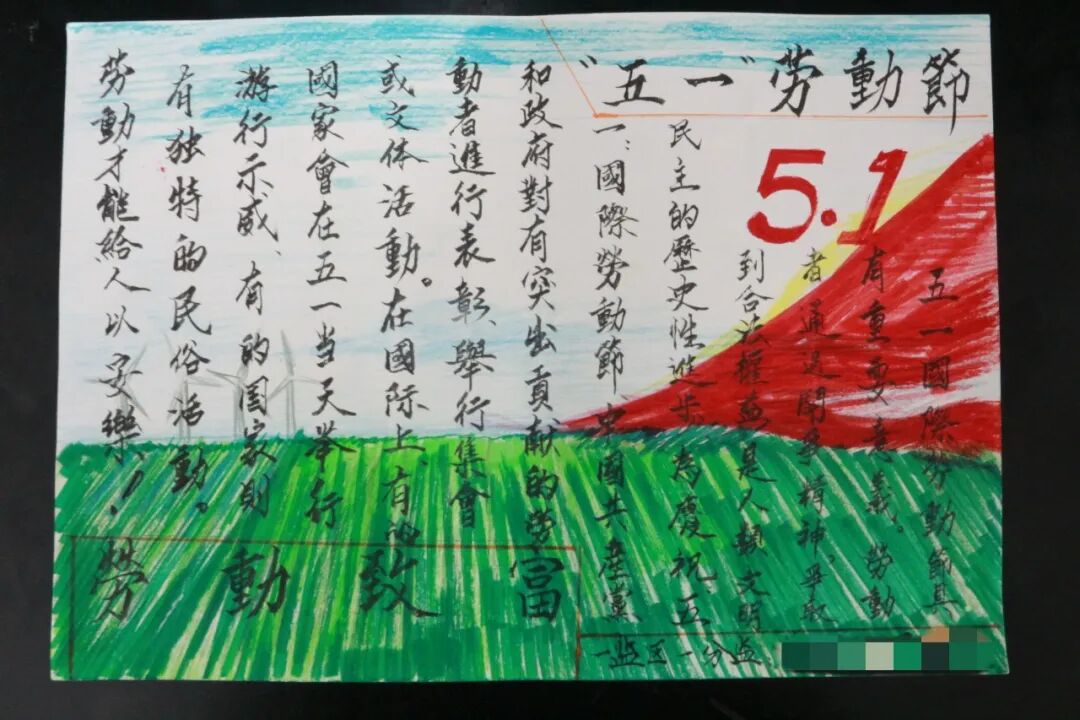 "五一"劳動節
5.1
五一國際勞動節具
有重要意義。勞動
者通過鬪爭精神,爭取
到合法權益是人類文明
民主的歷史性進步。為慶祝五
一:國際勞動節,中國共產黨
和政府對有突出貢献的勞
動者進行表彰、舉行集會
或文体活動。在國际上、有的
國家會在五一当天举行
游行示威、有的国家則
有独特的民俗活動。
劳動才能給人以安樂!
勞動致富
一监区一分监